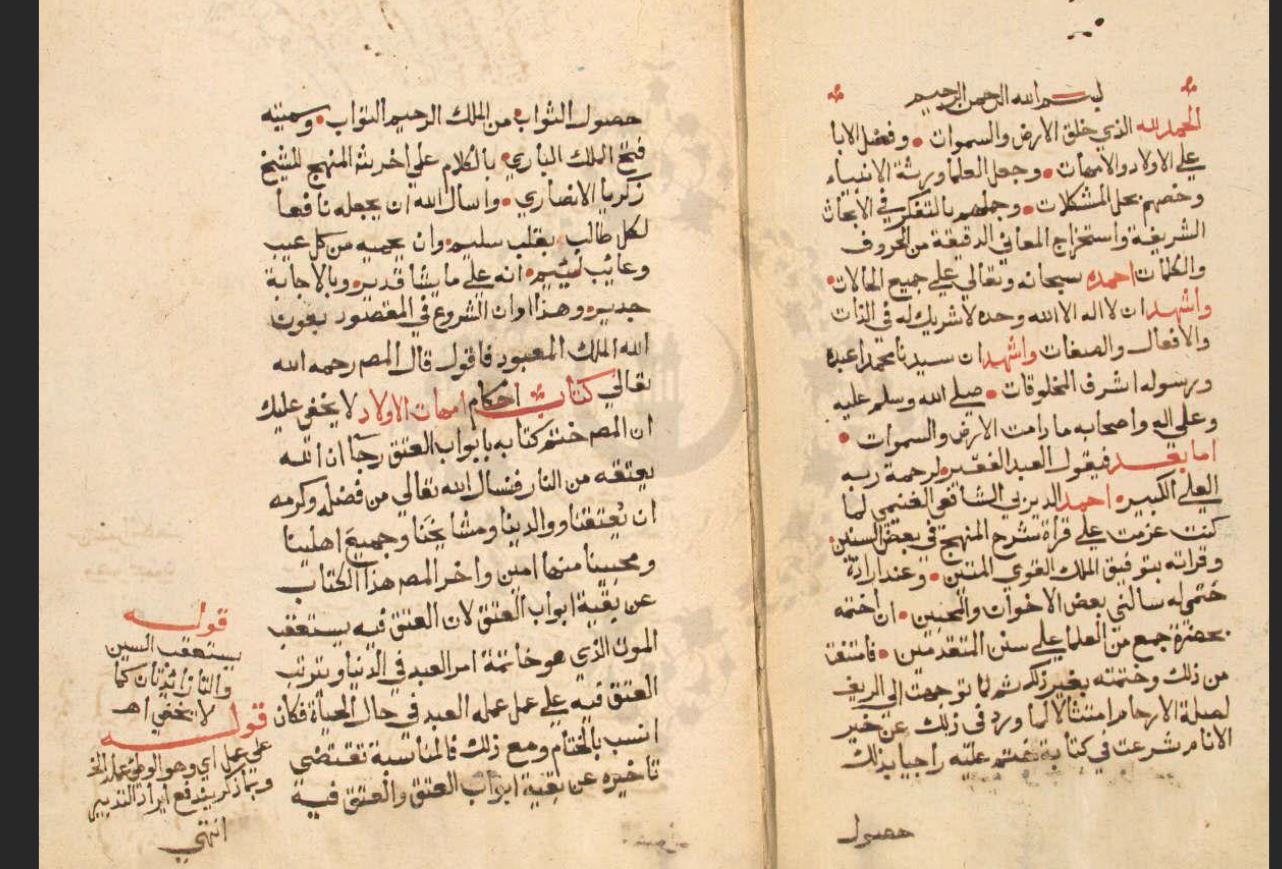 بسم الله الرحمن الرحيم
الحمد لله الذي خلق الارض والسموات • وفضل الابا
علي الاولاد والامهات • وجعل العلما ورثة الانبياء
وخصهم بحل المشكلات • وجملهم بالتفكر في الابحاث
الشريفة واستخراج المعاني الدقيقة من الحروف
والكلمات احمده سبحانه وتعالي علي جميع الحالات •
واشهد ان لا اله الا الله وحده لا شريك له في الذات
والافعال والصفات واشهد ان سيدنا محمدا عبده
ورسوله اشرف المخلوقات • صلي الله وسلم عليه
وعلي اله واصحابه ما دامت الارض والسموات •
اما بعد فيقول العبد الفقير لرحمة ربه
العلي الكبير • احمد الديربي الشافعي الغنيمي لما
كنت عزمت علي قراة شرح المنهج في بعض السنين •
وقراته بتوفيق الملك القوي المتين • وعند ارادة
ختمي له سالني بعض الاخوان والمحبين • ان اختمه
بحضرة جمع من العلما علي سنن المتقدمين • فامتنعت
من ذلك وختمته بغير ذكر ثم لما توجهت الي الريف
لصلة الارحام امتثالا لما ورد في ذلك عن خير
الانام شرعت في كتابة ختم عليه راجيا بذلك
حصول
حصول الثواب • من الملك الرحيم التواب • وسميته
فتح الملك الباري • بالكلام علي اخر شرح المنهج للشيخ
زكريا الانصاري • واسال الله ان يجعله نافعا
لكل طالب بقلب سليم • وان يحميه من كل عيب
وعائب لئيم • انه علي ما يشا قدير • وبالاجابة
جدير • وهذا اوان الشروع في المقصود بعون
الله الملك المعبود فاقول قال المص رحمه الله
تعالي كتاب احكام امهات الاولاد لا يخفي عليك
ان المص ختم كتابه بابواب العتق رجا ان الله
يعتقه من النار فنسال الله تعالي من فضله وكرمه
ان يعتقنا ووالدينا ومشايخنا وجميع اهلينا
ومحبينا منها امين واخر المص هذا الكتاب
عن بقية ابواب العتق لان العتق فيه يستعقب
الموت الذي هو خاتمة امر العبد في الدنيا ويترتب
العتق فيه علي عمل عمله العبد في حال الحياة فكان
انسب بالختام ومع ذلك فالمناسبة تقتضي
تاخيره عن بقية ابواب العتق والعتق فيه
قوله
يستعقب السين
والتا زائدتان كما
لا يخفي اهـ
قوله
علي عمل اي وهو الوطي
وبما ذكر يندفع ايراد التدبير
انتهي